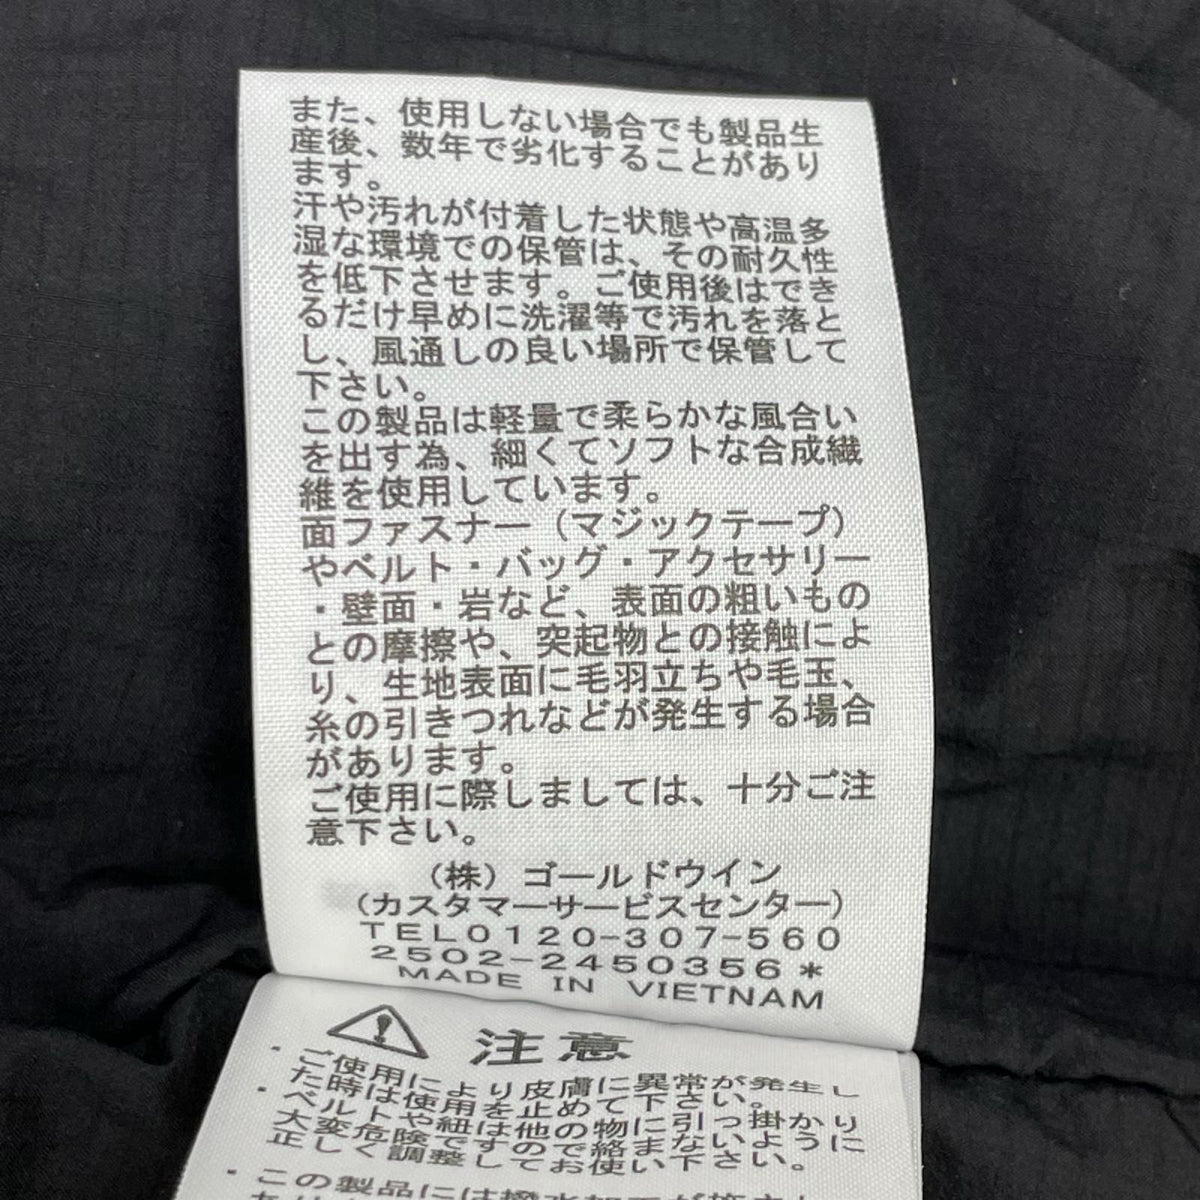 また、使用しない場合でも製品生
産後、数年で劣化することがあり
ます。
汗や汚れが付着した状態や高温多
湿な環境での保管は、その耐久性
を低下させます。ご使用後はでき
るだけ早めに洗濯等で汚れを落と
し、風通しの良い場所で保管して
下さい。
この製品は軽量で柔らかな風合い
を出す為、細くてソフトな合成繊
維を使用しています。
面ファスナー（マジックテープ）
やベルト・バッグ・アクセサリー
・壁面・岩など、表面の粗いもの
との摩擦や、突起物との接触によ
り、生地表面に毛羽立ちや毛玉、
糸の引きつれなどが発生する場合
があります。
ご使用に際しましては、十分ご注
意下さい。
（株）ゴールドウイン
（カスタマーサービスセンター）
TEL0120-307-560
2502-2450356*
MADE IN VIETNAM
注意
・ご使用により皮膚に異常が発生し
た時は使用を止めて下さい。
・ベルトや紐は他の物に引っ掛かり
大変危険ですので絡まないように
正しく調整してお使い下さい。
・この製品には撥水加工が施され